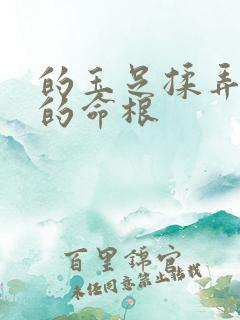 的玉足揉弄
的命根
百里锦官
未经同意禁止转载